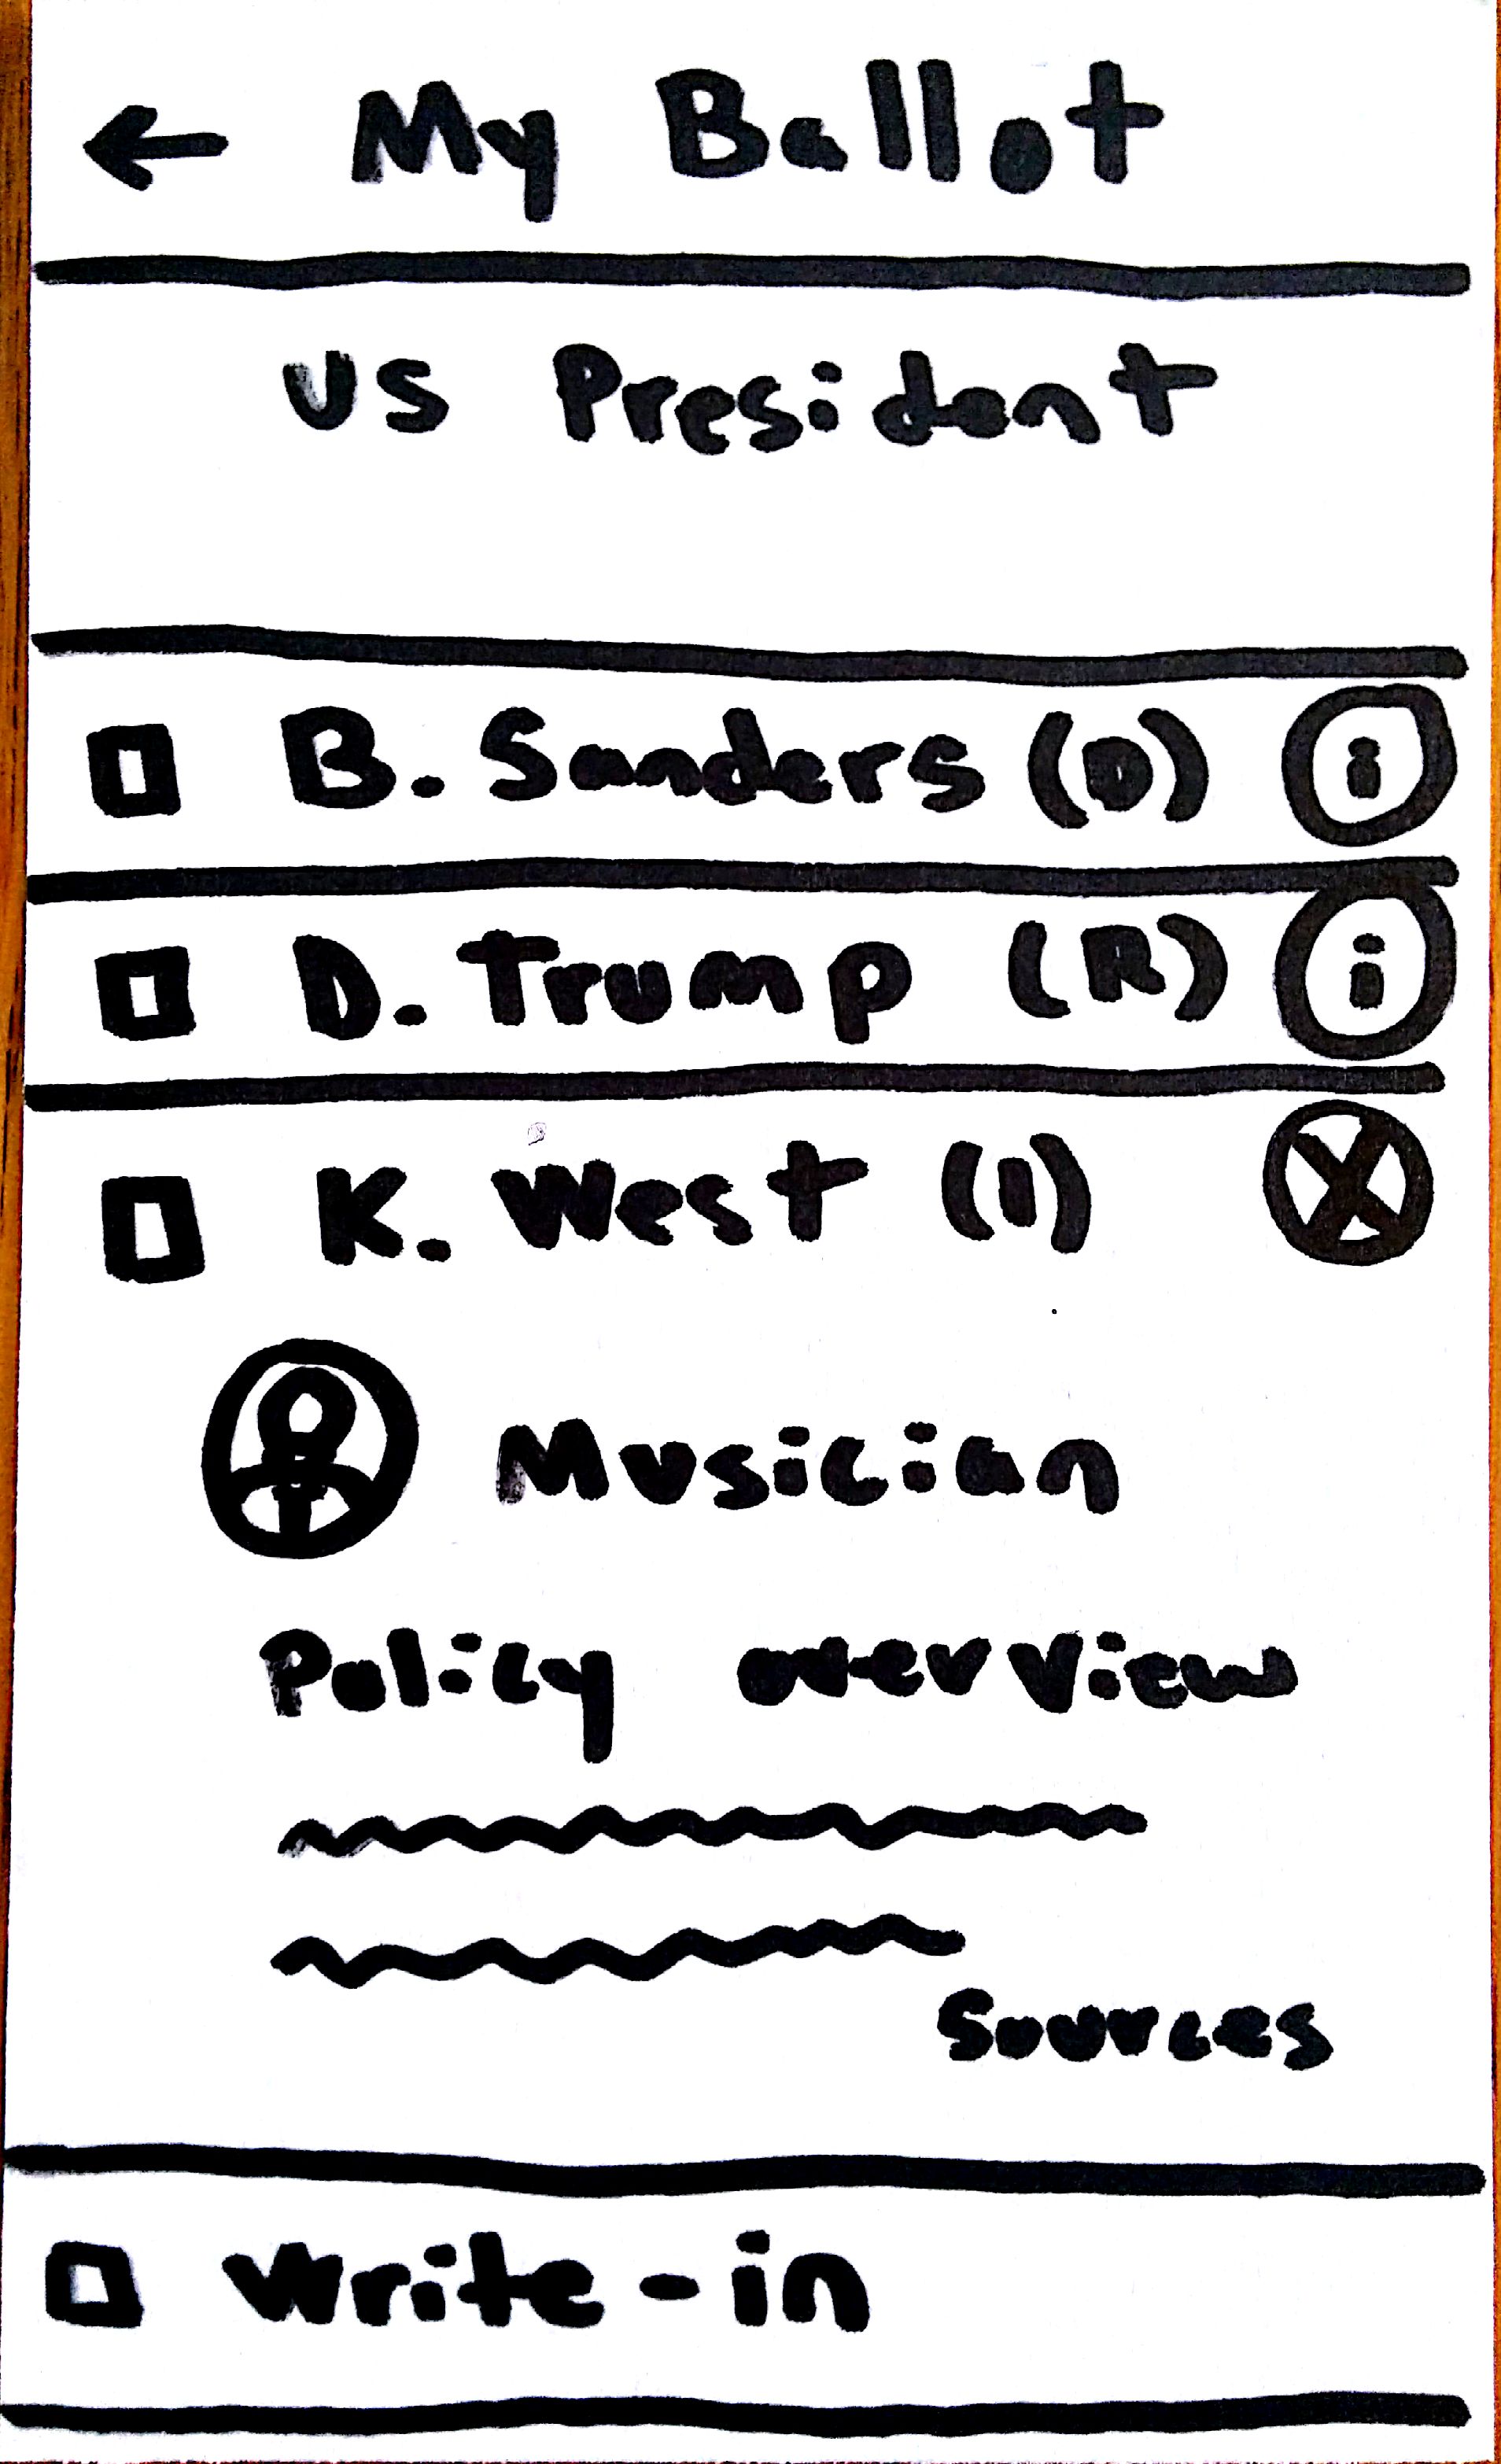 ← My Ballot
US President
B. Sanders (D) i
D. Trump (R) i
K. West (I) X
Musician
Policy overview
Sources
Write-in